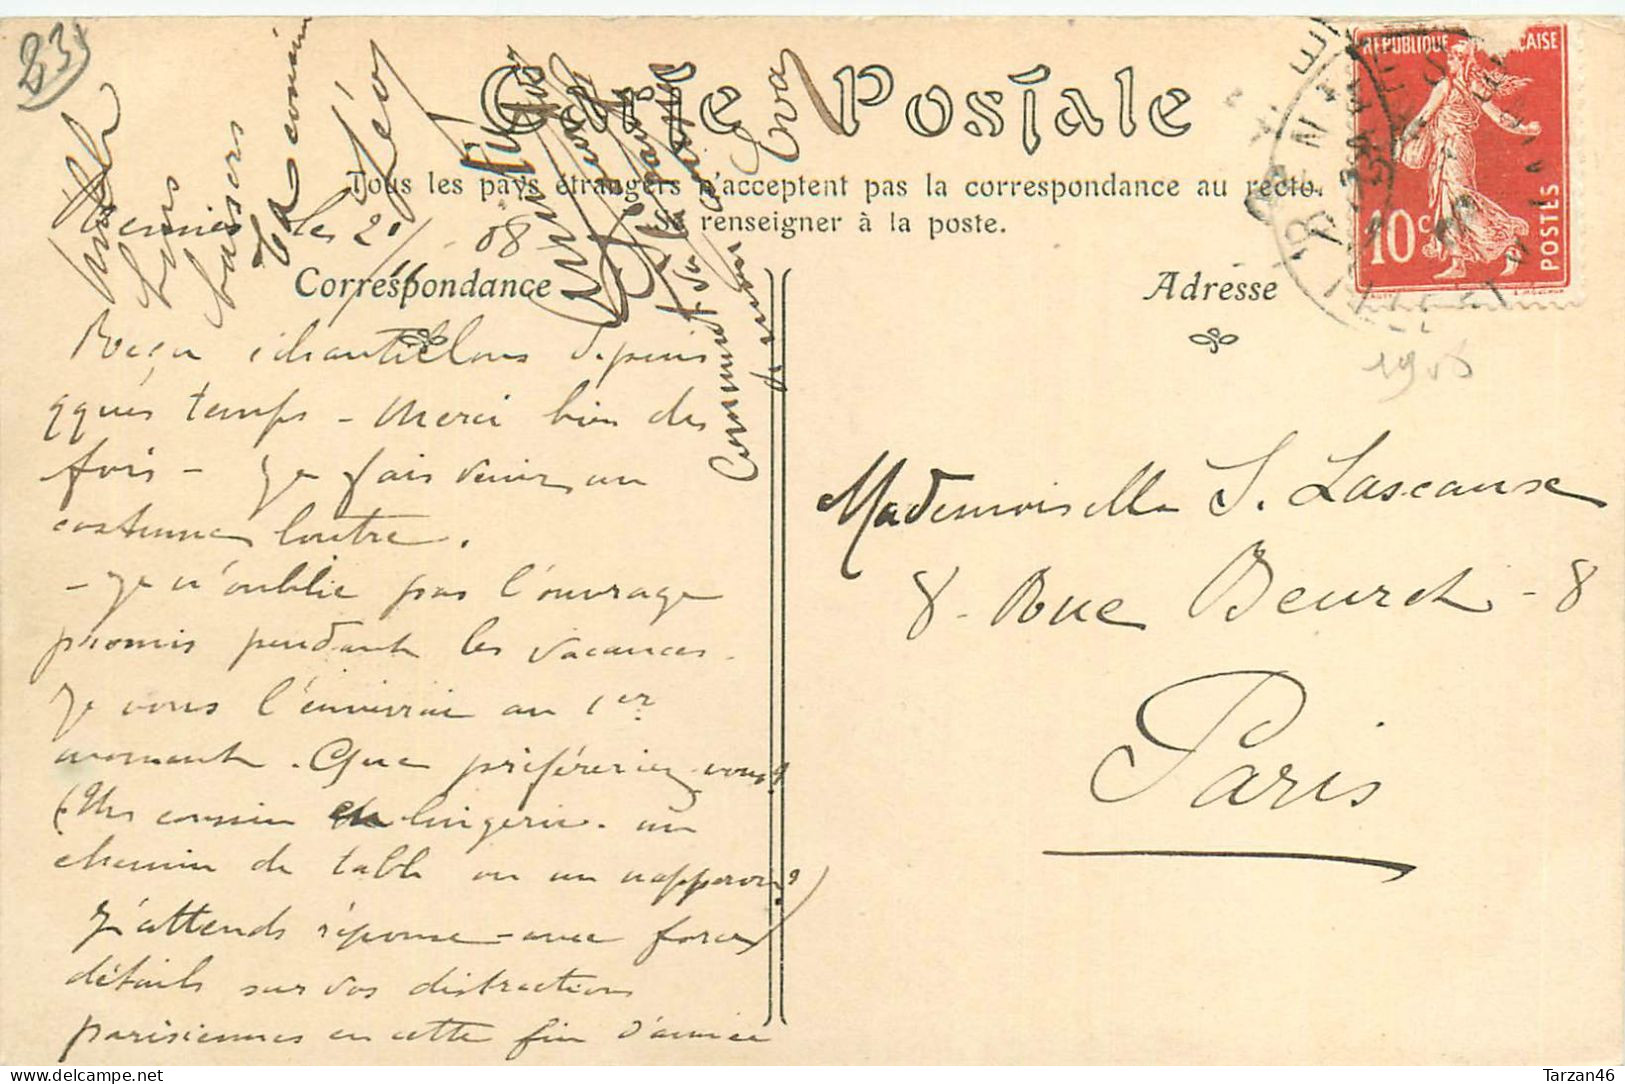 83
Carte Postale
Tous les pays étrangers n'acceptent pas la correspondance au recto.
Se renseigner à la poste.
Correspondance
Adresse
REPUBLIQUE FRANÇAISE
10c
POSTES
RENNES
1908
Rennes le 2 - 08
Reçu échantillons depuis
qques temps - Merci bien des
fois - Je fais venir un
costume loutre.
- Je n'oublie pas l'ouvrage
promis pendant les vacances.
Je vous l'enverrai au 1er
moment. Que préféreriez-vous?
(Un coussin lingerie. un
chemin de table ou un napperon?)
J'attends réponse - avec force
détails sur vos distractions
parisiennes en cette fin d'année
Comment va
bons
baisers
ta cousine
Léo
Eva
Mademoiselle S. Lascause
8 - Rue Beuret - 8
Paris
Tarzan46